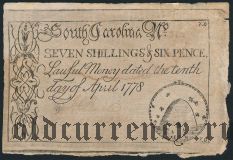 South Carolina. No.
SEVEN SHILLINGS & SIX PENCE,
Lawful Money dated the tenth
day of April 1778
oldcurrency.ru